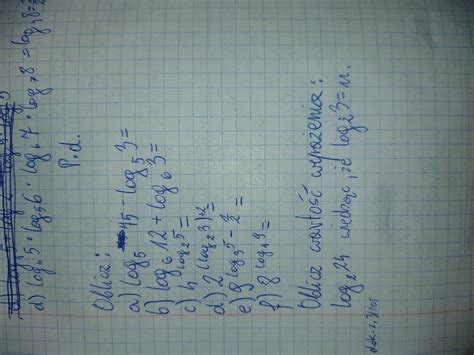 d) log₄5 · log₅6 · log₆7 · log₇8 = log₄8 =
P.d.
Oblicz:
a) log₅45 - log₅3 =
b) log₆12 + log₆3 =
c) 4^(log₂5) =
d) 2^((log₂3)+2) =
e) 9^(log₃5 - ½) =
f) 8^(log₄9) =
Oblicz wartość wyrażenia:
log₂24 wiedząc, że log₂3 = n.